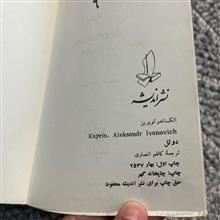 ۹
نشر اندیشه
الکساندر کوپرین
Kuprin, Aleksandr Ivanovich
دوئل
ترجمهٔ کاظم انصاری
چاپ اول: بهار ۲۵۳۷
چاپ: چاپخانه گهر
حق چاپ برای نشر اندیشه محفوظ